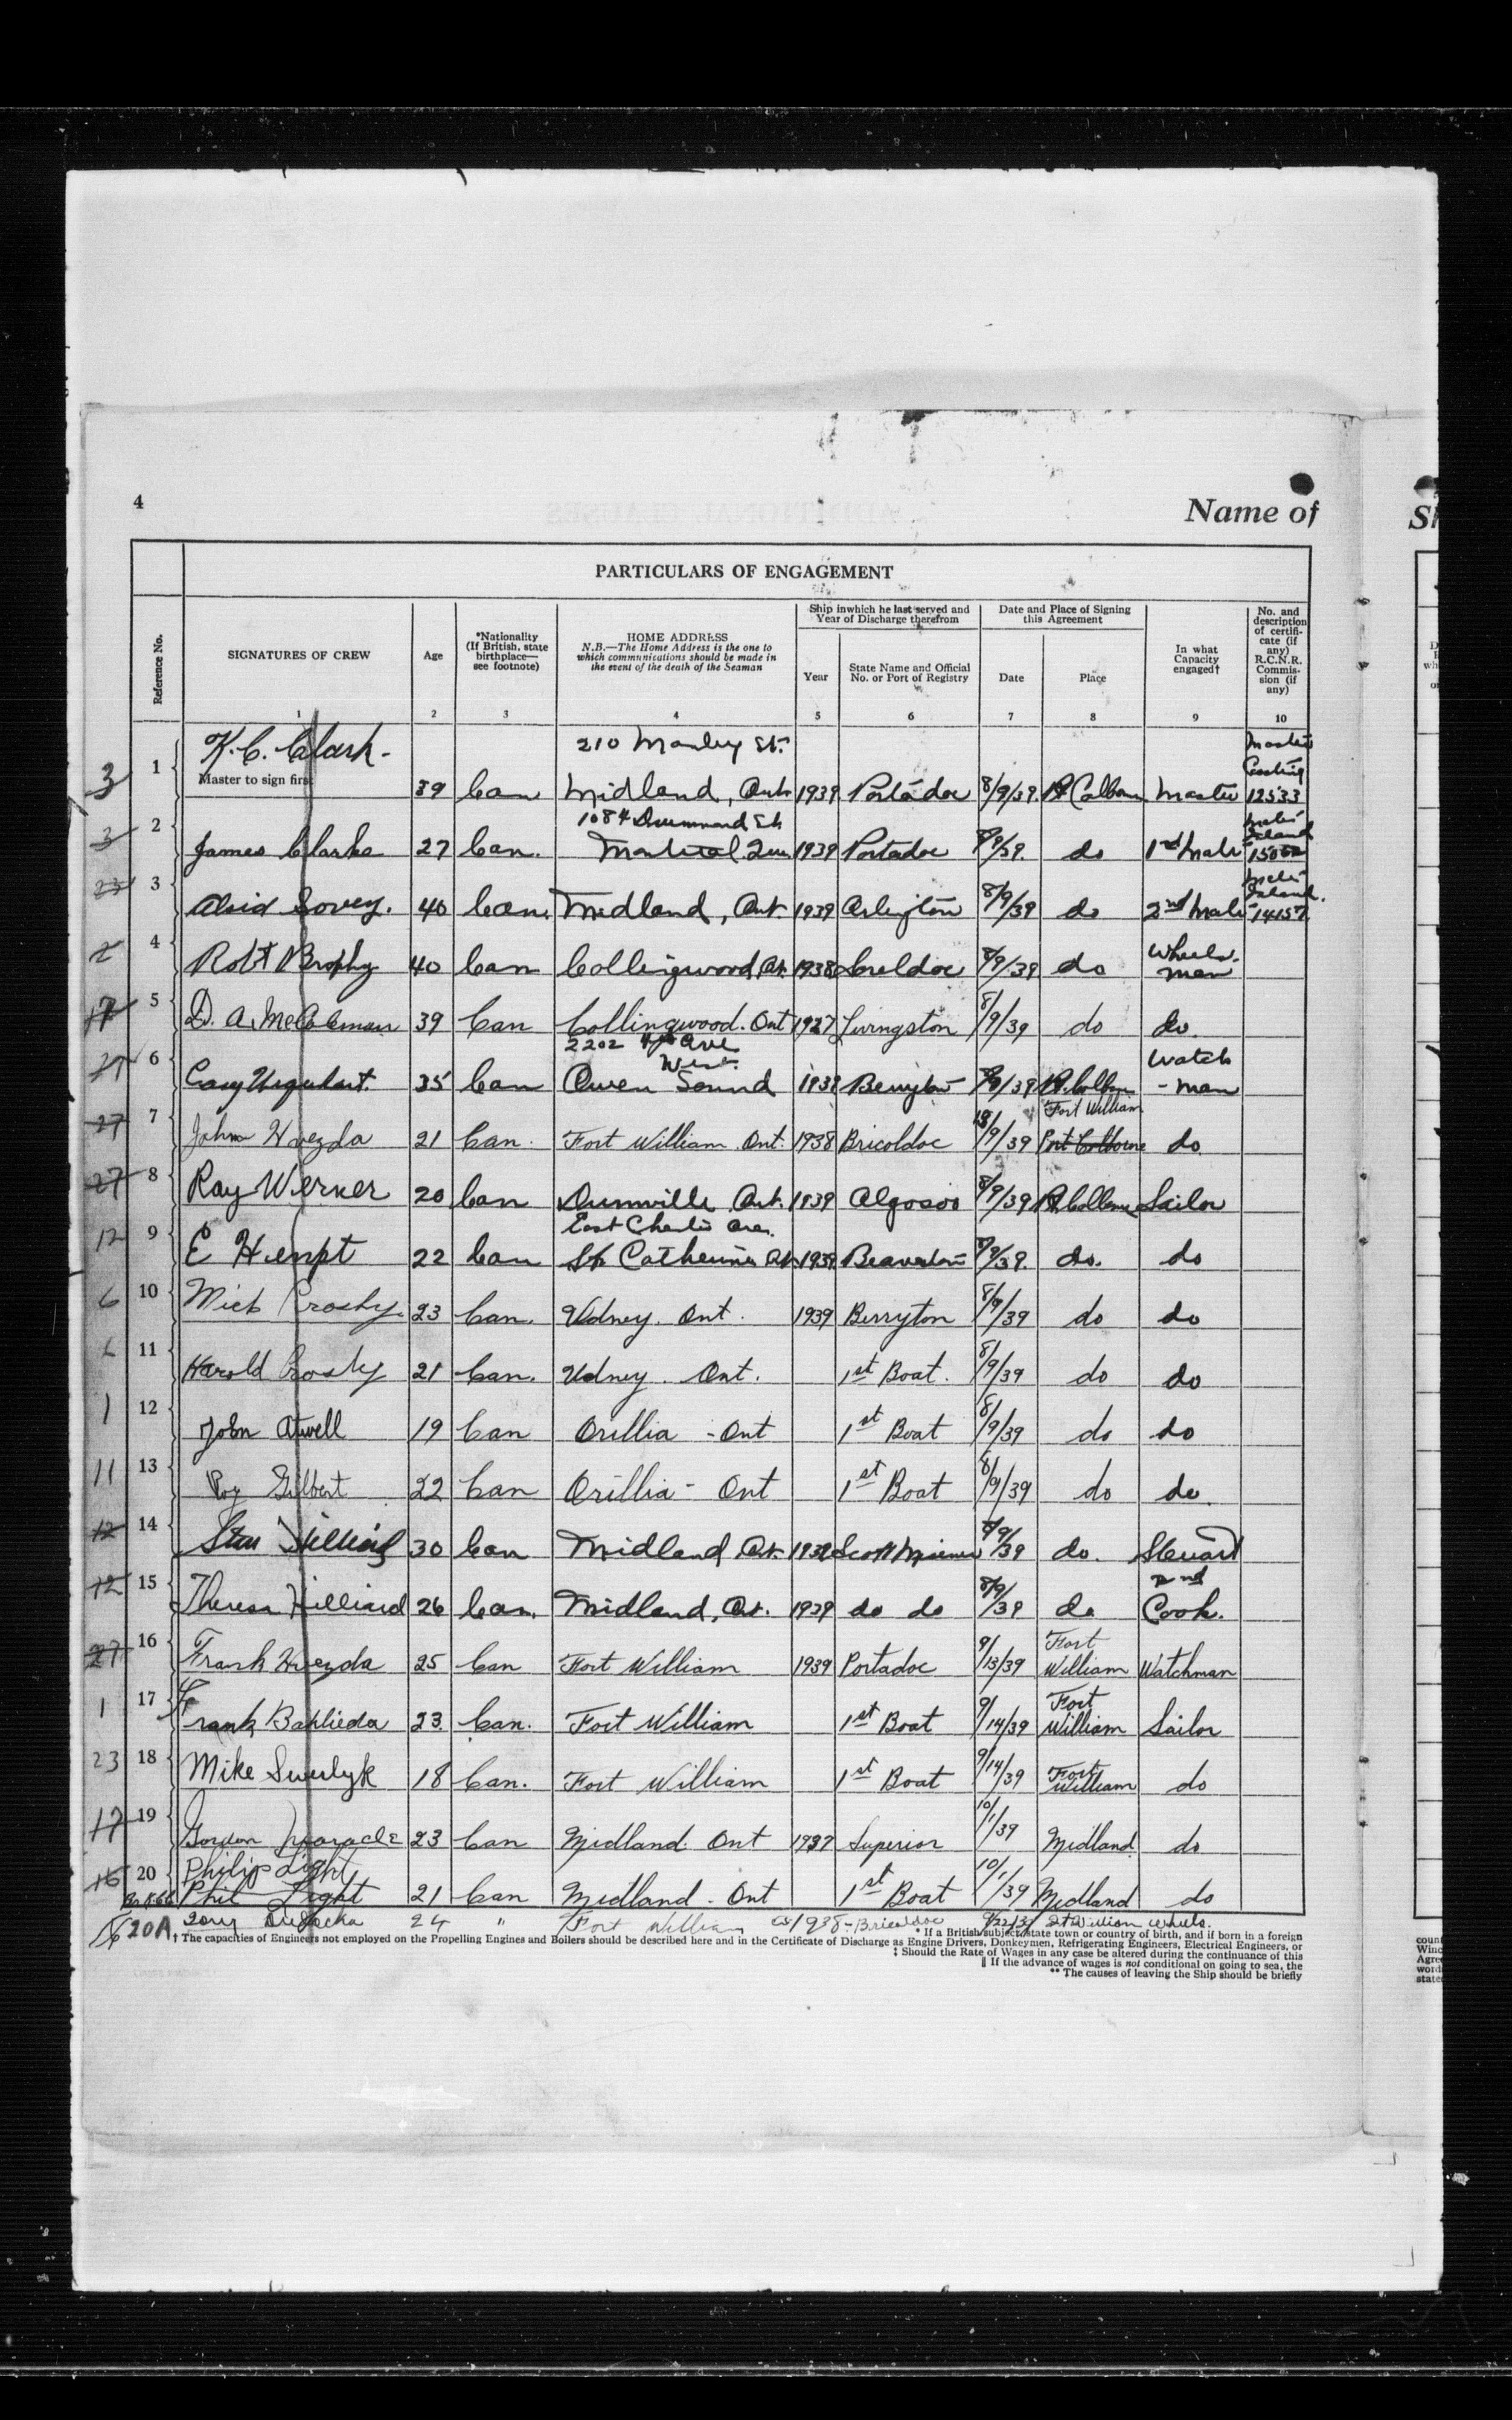 4
Name of
PARTICULARS OF ENGAGEMENT
Reference No.
SIGNATURES OF CREW
Age
*Nationality
(If British, state
birthplace—
see footnote)
HOME ADDRESS
N.B.—The Home Address is the one to
which communications should be made in
the event of the death of the Seaman
Ship in which he last served and
Year of Discharge therefrom
Year
State Name and Official
No. or Port of Registry
Date and Place of Signing
this Agreement
Date
Place
In what
Capacity
engaged†
No. and
description
of certifi-
cate (if
any)
R.C.N.R.
Commis-
sion (if
any)
1 2 3 4 5 6 7 8 9 10
210 Manley St.
3 1 K.C. Clark- 39 Can Midland, Ont 1939 Portadoc 8/9/39 Pt Colborne Master 12533
Master to sign first
1084 Drummond St
3 2 James Clarke 27 Can. Montreal Que 1939 Portadoc 8/9/39. do 1st Mate
23 3 Sovey. 40 Can. Midland, Ont. 1939 Arlington 8/9/39 do 2nd Mate 14157
2 4 Robt Brophy 40 Can Collingwood, Ont. 1938 8/9/39 do Wheels-
man
17 5 D. A. McColeman 39 Can Collingwood. Ont 1927 Livingston 8/9/39 do do.
2202 4th Ave
West
6 Urquhart. 35 Can Owen Sound Berryton 8/9/39 Pt. Colborne Watch
-man
Fort William
27 7 John Hvezda 21 Can. Fort William Ont. 1938 Bricoldoc 13/9/39 Port Colborne do.
27 8 Ray Werner 20 Can Dunnville Ont. 1939 Algosoo 8/9/39 Pt. Colborne Sailor
East Ave.
12 9 E Hempt 22 Can St Catherines Ont. 1939 Beaverton 8/9/39. do. do
6 10 Crosby. 23 Can. Udney. Ont. 1939 Berryton 8/9/39 do do
6 11 Harold Crosby 21 Can. Udney. Ont. 1st Boat. 8/9/39 do do
1 12 John Atwell 19 Can Orillia - Ont 1st Boat 8/9/39 do do
11 13 Roy Gilbert 22 Can Orillia - Ont 1st Boat 8/9/39 do do.
12 14 Stan Hilliard 30 Can Midland Ont. Scott Misener 8/9/39 do. Steward
12 15 Theresa Hilliard 26 Can. Midland, Ont. 1939 do do 8/9/39 do 2nd
Cook.
27 16 Frank Hvezda 25 Can Fort William 1939 Portadoc 9/13/39 Fort
William Watchman
1 17 Frank Bahlieda 23. Can. Fort William 1st Boat 9/14/39 Fort
William Sailor
23 18 Mike Swerlyk 18 Can. Fort William 1st Boat 9/14/39 Fort
William do
17 19 Gordon Maracle 23 Can Midland. Ont 1937 Superior 10/1/39 Midland do
Philip Light
16 20 Phil Light 21 Can Midland - Ont 1st Boat 10/1/39 Midland do
20A Tony 24 " Fort William 1938 - Bricoldoc Ft William Wheels.
* If a British subject, state town or country of birth, and if born in a foreign
† The capacities of Engineers not employed on the Propelling Engines and Boilers should be described here and in the Certificate of Discharge as Engine Drivers, Donkeymen, Refrigerating Engineers, Electrical Engineers, or
‡ Should the Rate of Wages in any case be altered during the continuance of this
|| If the advance of wages is not conditional on going to sea, the
** The causes of leaving the Ship should be briefly